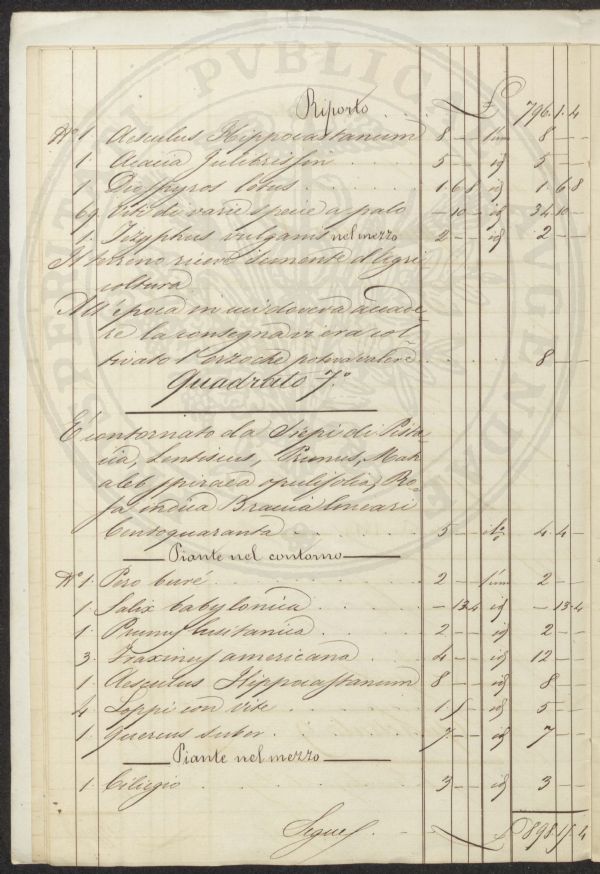 Riporto £ 796.1.4
N° 1. Aesculus Hippocastanum 8 - - l'uno 8 - -
1. Acacia Julibrissin 5 - - id 5 - -
1. Diospyros lotus 1.6.8 id 1.6.8
69. Viti di varie specie a palo - 10 - id 34.10 -
1. Zizyphus vulgaris nel mezzo 2 - - id 2 - -
Il terreno riceve semente d'agri
coltura
All'epoca in cui doverà accade
re la consegna vi era col
tivato l'orzo che poteva valere 8 - -
Quadrato 7.°
È contornato da Siepi di Pista
cia, Lentiscus, Prunus, Mah
aleb spiraea opulifolia, Ro
sa indica Braccia lineari
Centoquaranta 3 - 4. 4 -
Piante nel contorno
N° 1. Pero buré 2 - - l'uno 2 - -
1. Salix babylonica - 13.4 id - 13.4
1. Prunus lusitanica 2 - - id 2 - -
3. Fraxinus americana 4 - - id 12 - -
1. Aesculus Hippocastanum 8 - - id 8 - -
4. Loppi con vite 1 5 - id 5 - -
1. Quercus suber 7 - - id 7 - -
Piante nel mezzo
1. Ciliegio 3 - - id 3 - -
Segue £ 898.15.4
PROSPERITATI PVBLICAE AVGENDAE